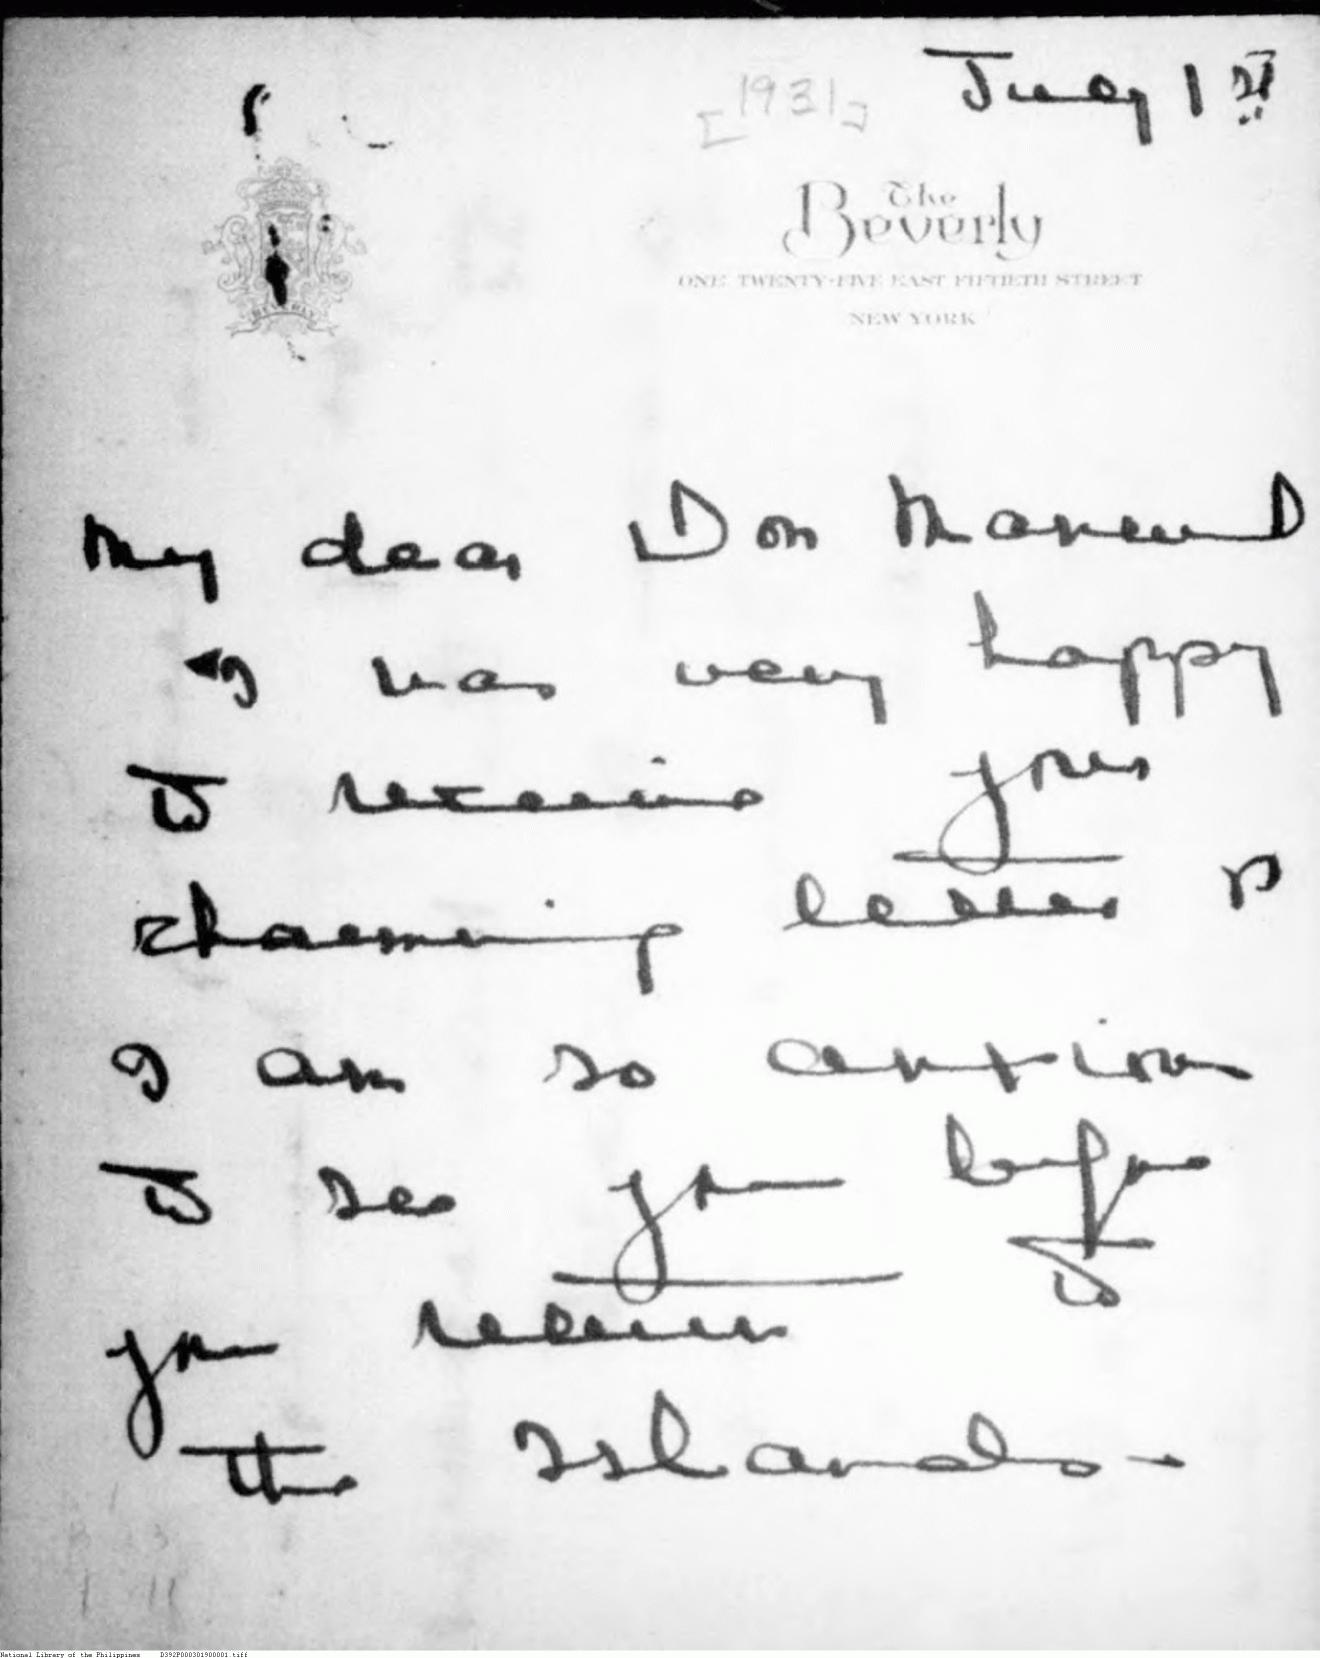 July 1st
[1931]
The
Beverly
ONE TWENTY-FIVE EAST FIFTIETH STREET
NEW YORK
BEVERLY
My dear Don Manuel
I was very happy
to receive your
charming letter &
I am so anxious
to see you before
you return to
the Islands -
National Library of the Philippines D392P000301900001.tiff